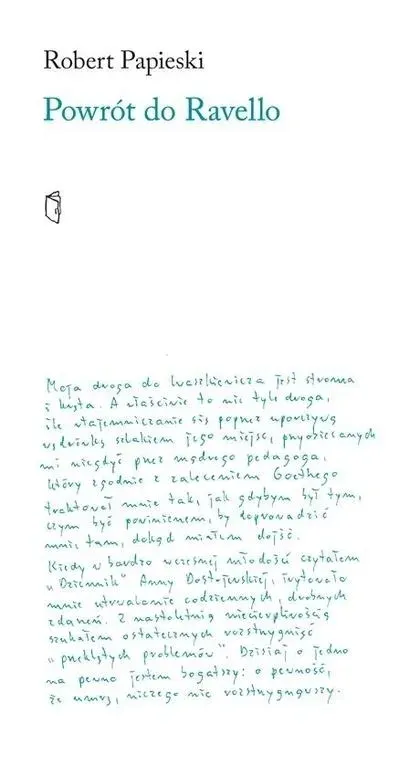 Robert Papieski
Powrót do Ravello
Moja droga do Iwaszkiewicza jest stroma
i kręta. A właściwie to nie tyle droga,
ile wtajemniczanie się poprzez uporczywą
wędrówkę szlakiem jego miejsc, przydzielanych
mi niegdyś przez mądrego pedagoga,
który zgodnie z zaleceniem Goethego
traktował mnie tak, jak gdybym był tym,
czym być powinienem, by doprowadzić
mnie tam, dokąd miałem dojść.
Kiedy w bardzo wczesnej młodości czytałem
„Dziennik” Anny Dostojewskiej, irytowało
mnie utrwalanie codziennych, drobnych
zdarzeń. Z nastoletnią niecierpliwością
szukałem ostatecznych rozstrzygnięć
„przeklętych problemów”. Dzisiaj o jedno
na pewno jestem bogatszy: o pewność,
że umrę, niczego nie rozstrzygnąwszy.